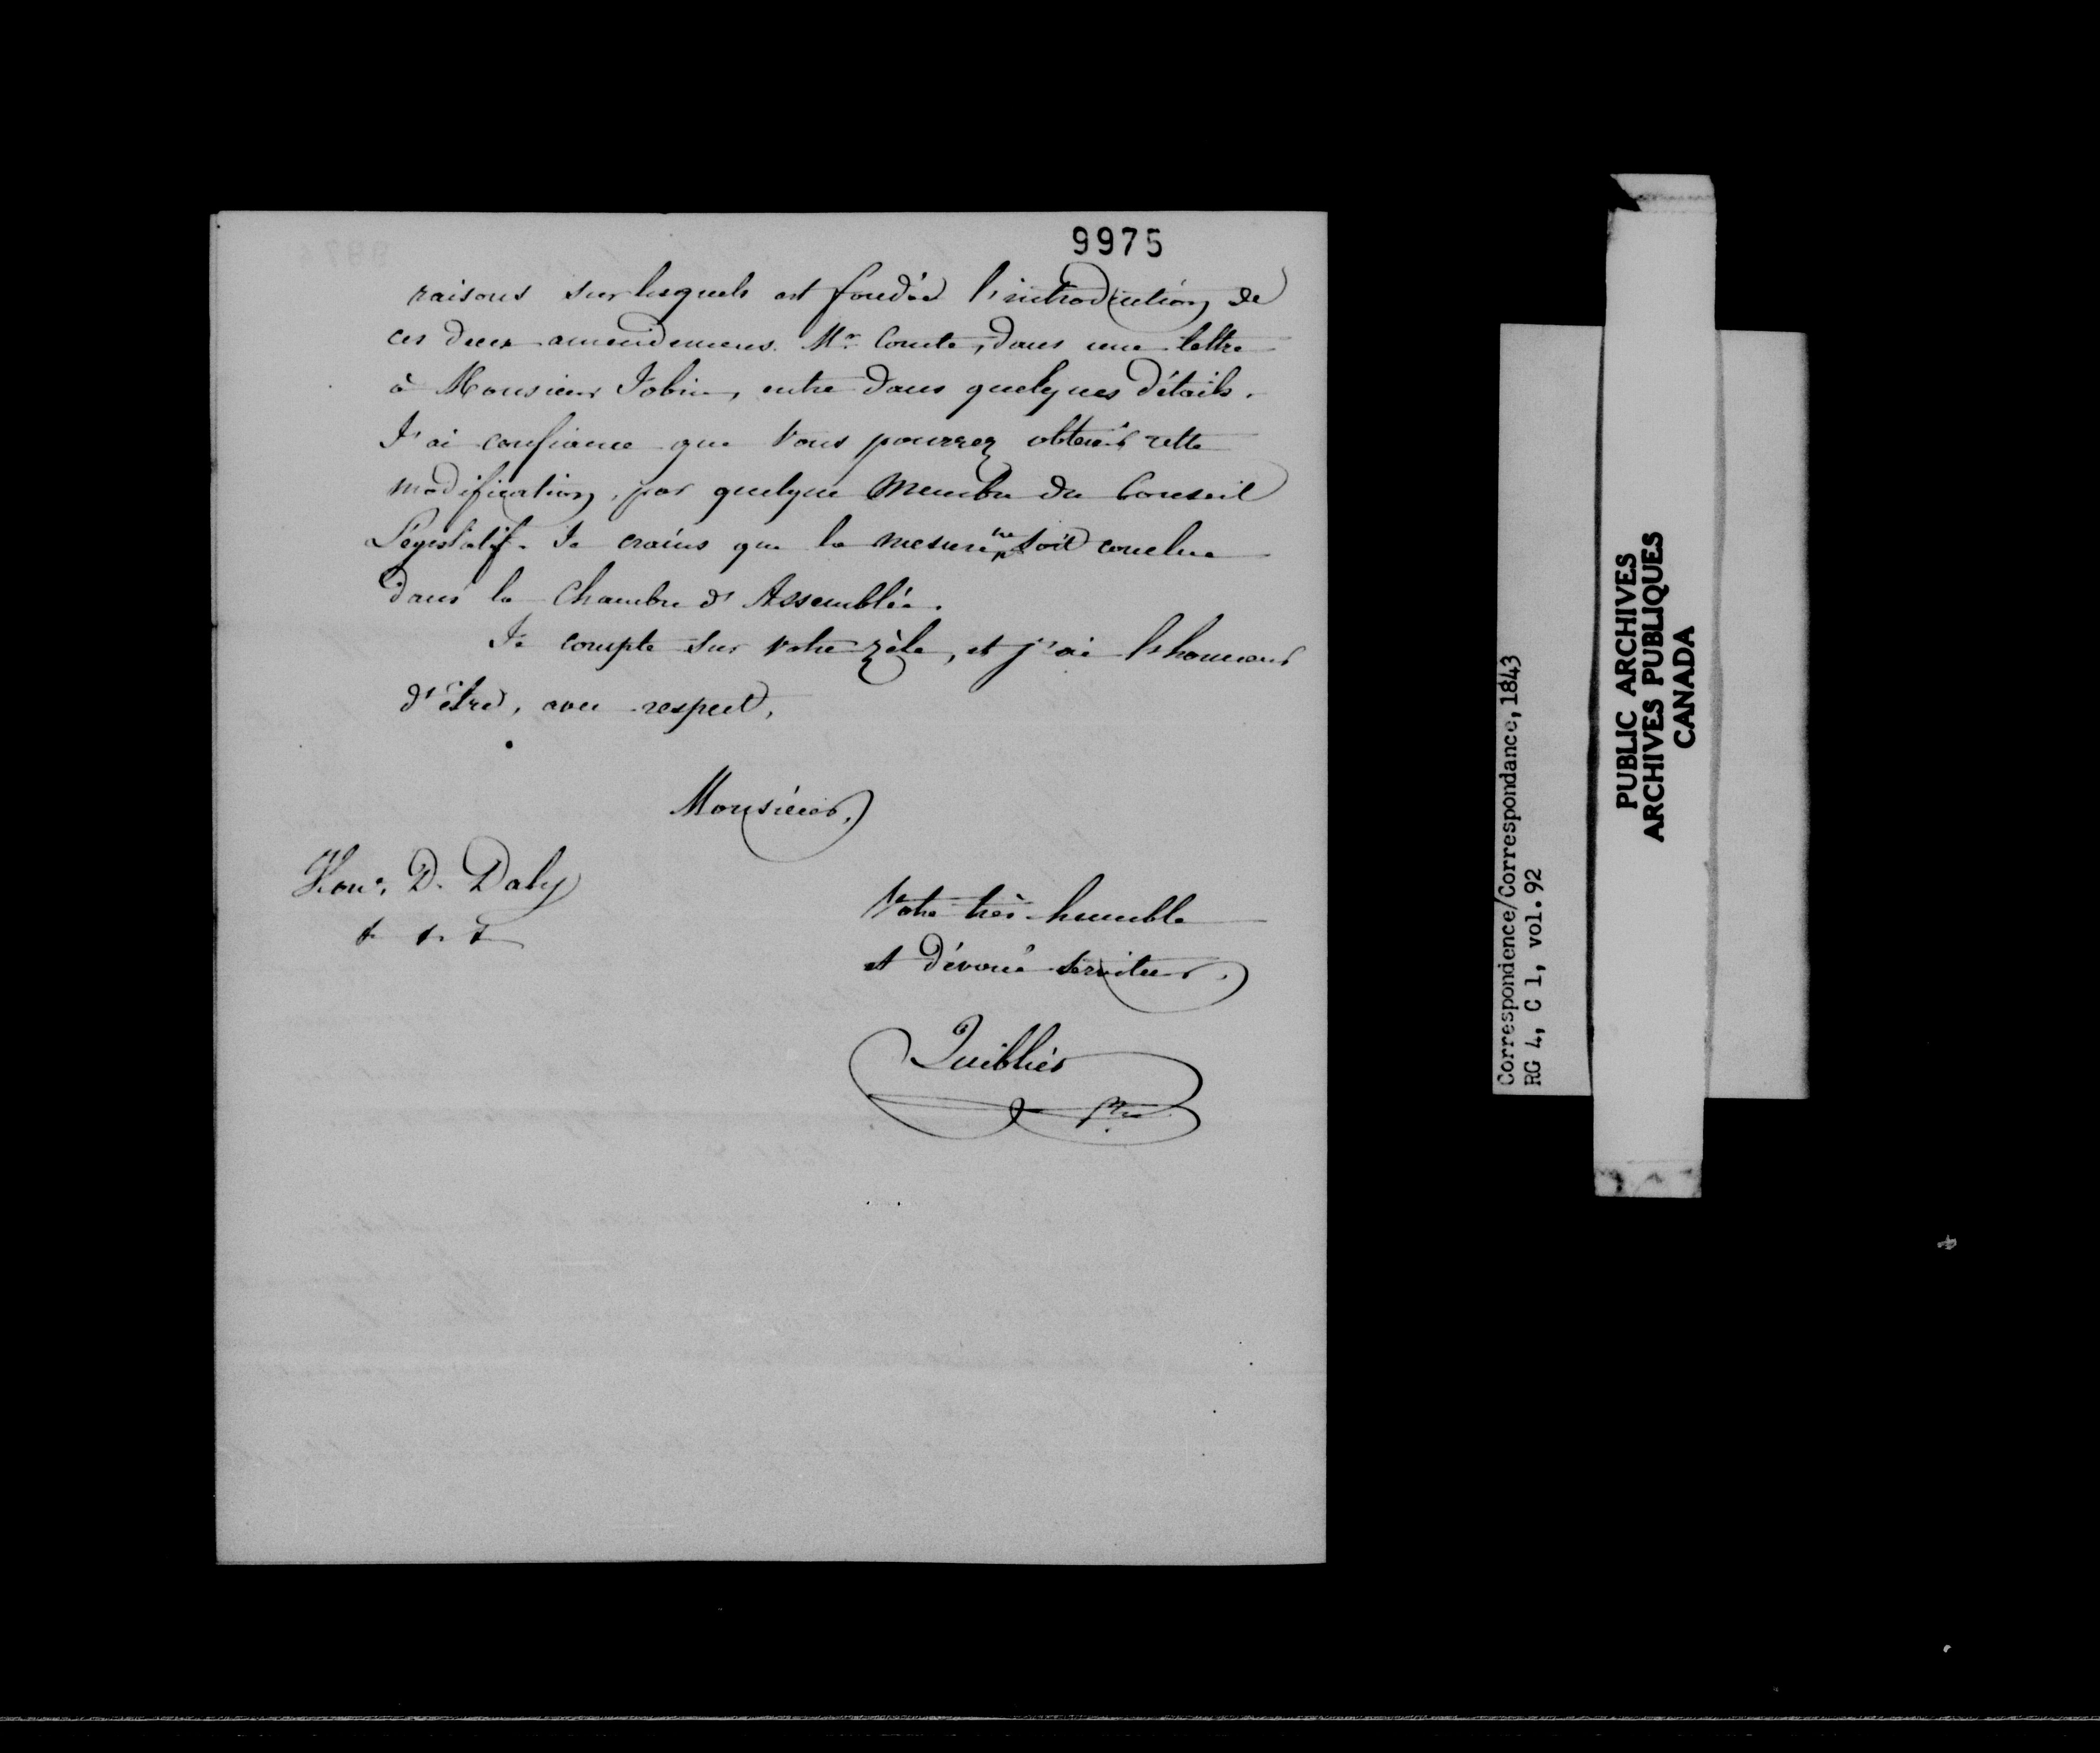 9975
raisons sur lesquels est fondée l'introduction de
ces deux amendemens. Mr. Comte, dans une lettre
à Monsieur Jobin, entre dans quelques détails.
J'ai confiance que vous pourrez obtenir cette
modification, par quelque Membre du Conseil
Législatif. Je crains que la mesure ne soit conclue
dans la Chambre d'Assemblée.
Je compte sur votre zèle, et j'ai l'honneur
d'être, avec respect,
Monsieur,
Hon. D. Daly
Votre très-humble
et dévoué serviteur.
Quiblier
Ptre
Correspondence/Correspondance, 1843
RG 4, C 1, vol. 92
PUBLIC ARCHIVES
ARCHIVES PUBLIQUES
CANADA